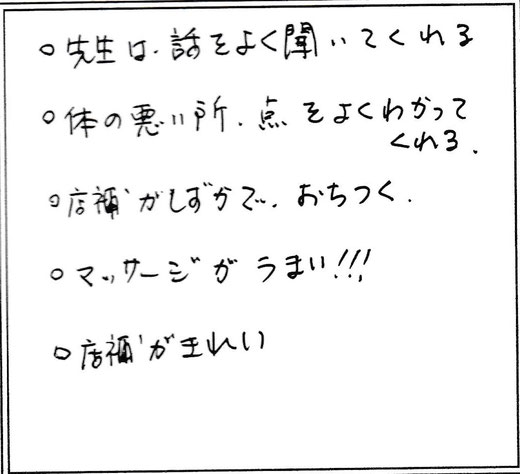 ○先生は、話をよく聞いてくれる
○体の悪い所、点をよくわかって
くれる.
○店補がしずかで、おちつく.
○マッサージがうまい!!!
○店補がきれい